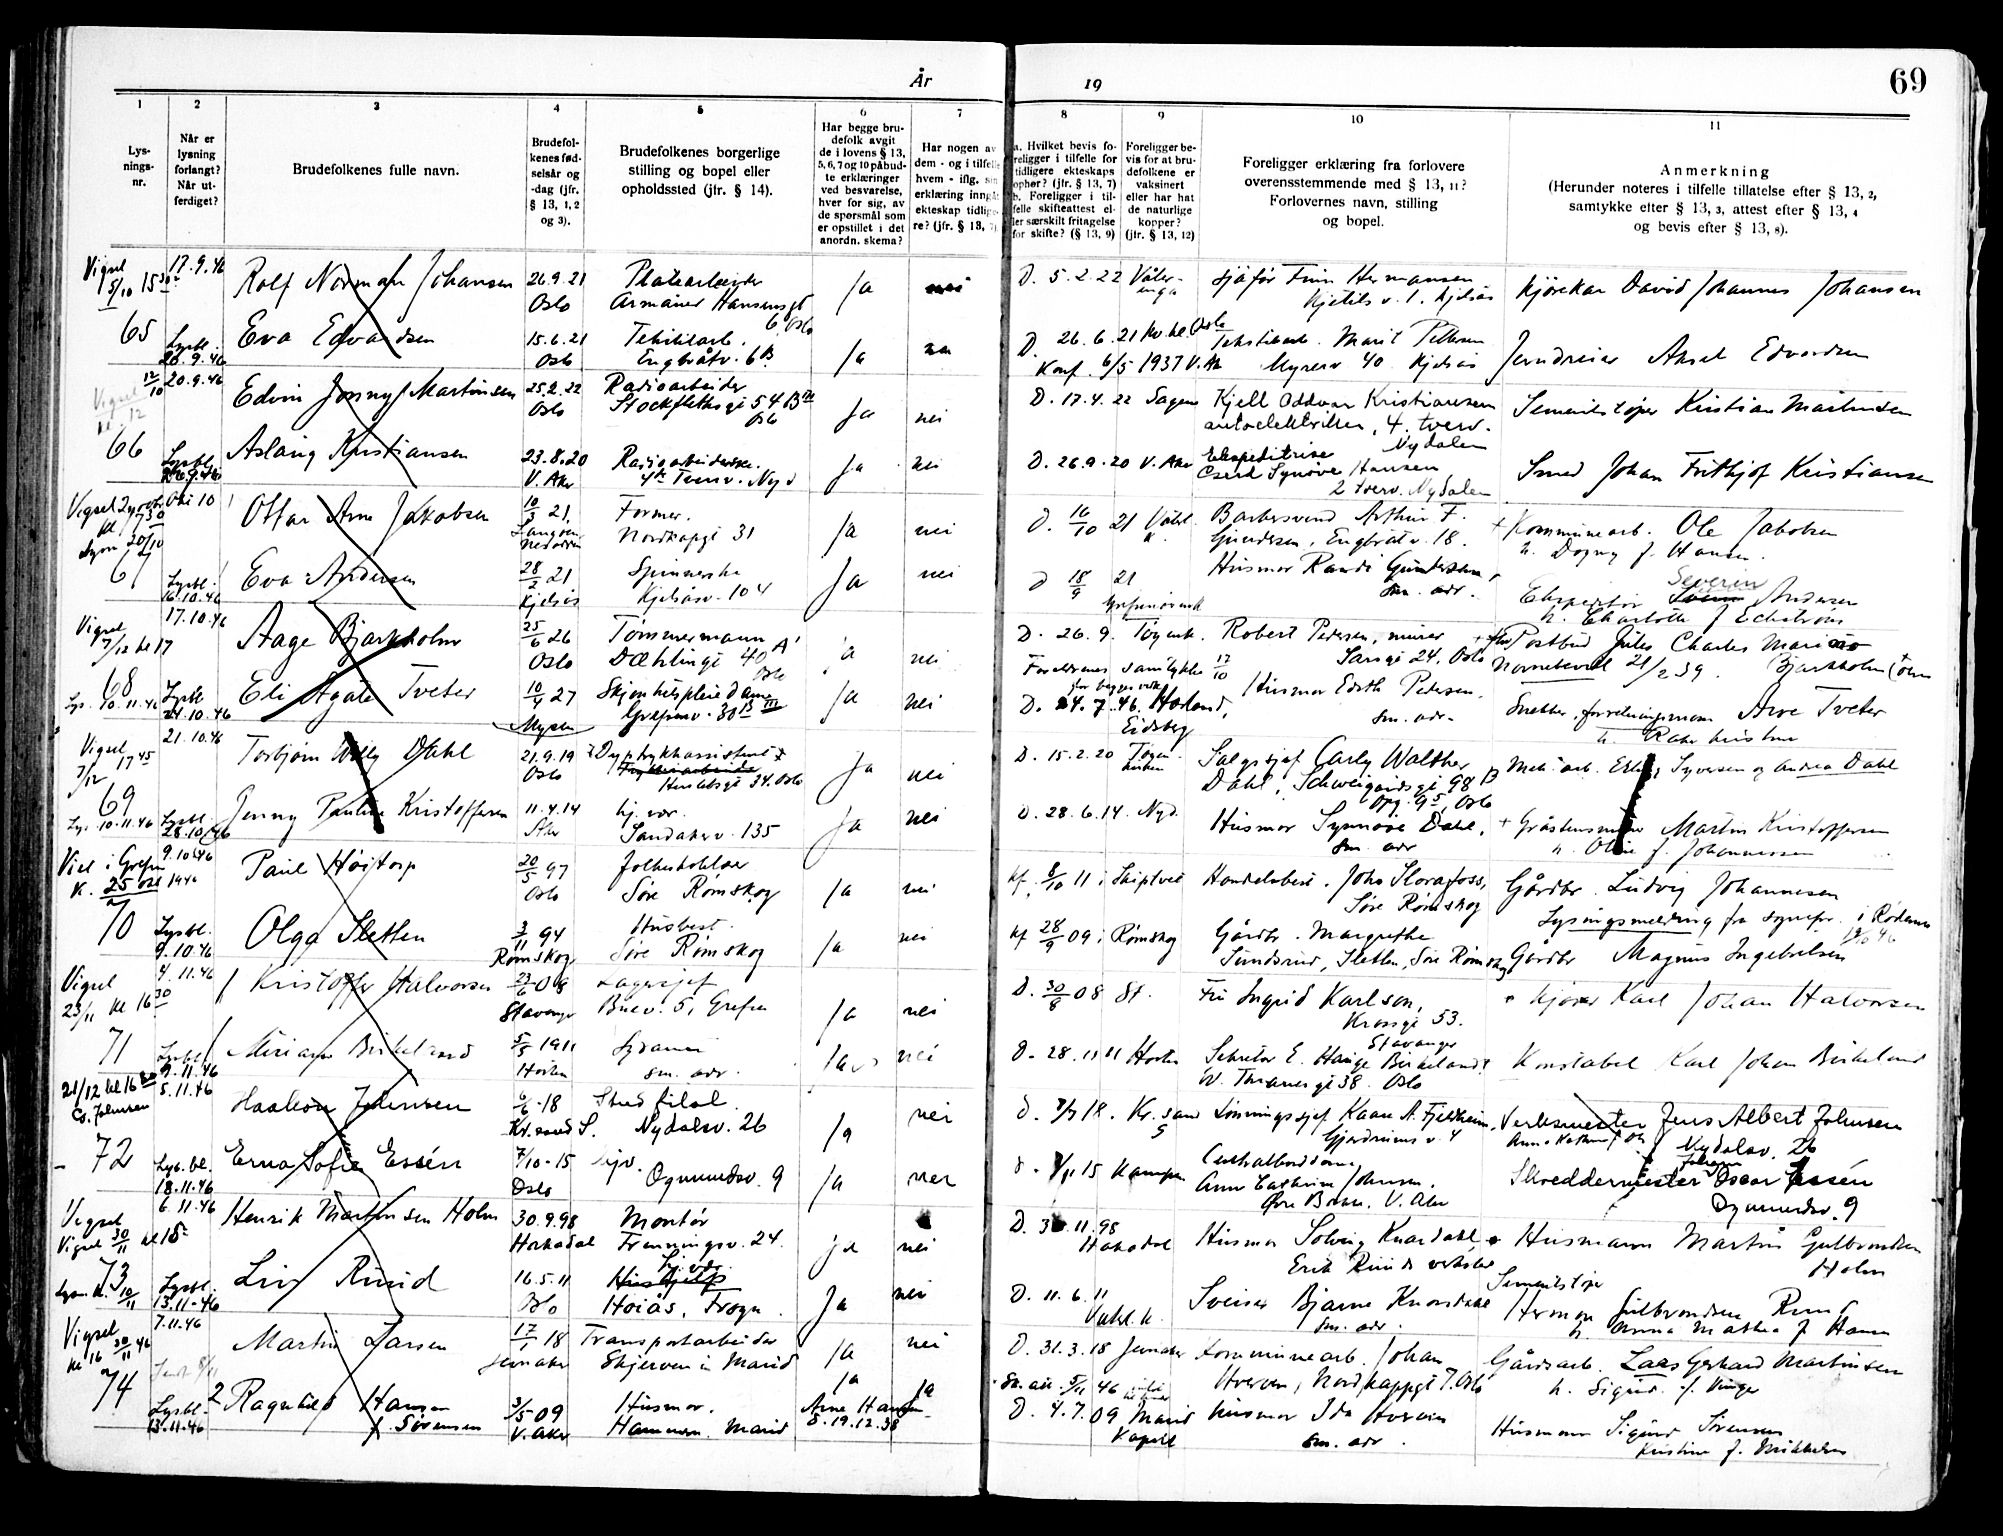 År 19
69
1
Lys-
nings-
nr.
2
Når er
lysning
forlangt?
Når ut-
ferdiget?
3
Brudefolkenes fulle navn.
4
Brudefol-
kenes fød-
selsår og
-dag (jfr.
§ 13, 1, 2
og 3).
5
Brudefolkenes borgerlige
stilling og bopel eller
opholdssted (jfr. § 14).
6
Har begge bru-
defolk avgit
de i lovens § 13,
5, 6, 7 og 10 påbud-
te erklæringer
ved besvarelse,
hver for sig, av
de spørsmål som
er opstillet i det
anordn. skema?
7
Har nogen av
dem - og i tilfelle
hvem - iflg. sin
erklæring inngå
ekteskap tidlige-
re? (jfr. § 13,
8
a. Hvilket bevis fo-
religger i tilfelle for
tidligere ekteskaps
ophør? (jfr. § 13, 7)
b. Foreligger i til-
felle skifteattest el-
ler særskilt fritagelse
for skifte? (§ 13, 9)
9
Foreligger be-
vis for at bru-
defolkene er
vaksinert
eller har hat
de naturlige
kopper?
(jfr. § 13, 12)
10
Foreligger erklæring fra forlovere
overensstemmende med § 13, 11?
Forlovernes navn, stilling
og bopel.
11
Anmerkning
(Herunder noteres i tilfelle tillatelse efter § 13, 2,
samtykke efter § 13, 3, attest efter § 13, 4
og bevis efter § 13, 8).
Vigsel 5/10 15 30
17.9.46
Rolf Norman Johansen
26.9.21 Oslo
Platearbeider
Armauer Hansensgt 6, Oslo
Ja nei
D. 5.2.22 Våler-
enga
sjåfør Finn Hermansen
Kjelsås
kjørekar David Johannes Johansen
65
Lysbl. 26.9.46
Eva Edvardsen
15.6.21 Oslo
Tekstilarb.
Engbråtv. 6B
Ja nei
D. 26.6.21
Konf. 6/5 1937 V. Ak
Tekstilarb. Marit Pettersen
Myrerv 40 Kjelsås
Jerndreier Aksel Edvardsen
12/10 20.9.46
Edvin Jonny Martinsen
25.2.22 Oslo
Radioarbeider
Stockflethsgt 54 B
Oslo
Ja nei
D. 17.4.22 Sagene
Kjell Oddvar Kristiansen
4. tverv.
Nydalen
Kristian Martinsen
66
Lysbl.
Aslaug Kristiansen
23.8.20 V. Aker
Radioarbeiderske
4de Tverv. Nyd
Ja nei
D. 26.9.20 V. Aker
Ekspeditrise
Synøve Hansen
2 tverv. Nydalen
Smed Johan Frithjof Kristiansen
Vigsel
Ottar Arne Jakobsen
10/3 21.
Former.
Nordkapgt 31
Ja nei
D. 16/10 21
Barbersvend Arthur F.
Gundersen, Engbråtv. 18.
+ Kommunearb. Ole Jakobsen
h. Dagny f. Hansen.
67
Lysbl. 16.10.46
Eva Andersen
28/2 21 Kjelsås
Spinnerske
Kjelsåsv. 104
Ja nei
D 18/9 21
Husmor Randi Gundersen,
sm. adr.
Ekspeditør Severin Andersen
h. Charlotte f. Eckstrøm
Vigsel 7/12 kl 17
17.10.46
Aage Bjarkholm
25/6 26 Oslo
Tømmermann
Dæhlingt 40 A
Oslo
Ja nei
D. 26.9.
Foreldrenes samtykke 17/10
for begge vedk.
Robert Pedersen, murer
Sarsgt 24, Oslo
Postbud Jules Charles
Bjarkholm
68
Lys. 10.11.46
Lysbl 24.10.46
Eli Agate Tveter
10/4 27 Mysen
Skjønhetspleie dame
Grefsenv. 30 B III
Ja nei
D. 24.7.46. Hærland,
Eidsberg
Husmor Edith Pedersen.
sm. adr.
Snekker, forretningsmann Arve Tveter
Vigsel 7/12 17 45
21.10.46
Torbjørn Willy Dahl
21.9.19 Oslo
Dyptrykkassistent
Herslebsgt 34. Oslo
Ja nei
D. 15.2.20
Salgssjef Carly Walther
Dahl, Schweigaardsgt 98 B
Opg. 95, Oslo
Mek. arb. Syversen og Andrea Dahl
69
Lys. 10.11.46
Lysbl. 28.10.46
Jenny Pauline Kristoffersen
11.4.14 Aker
hj. vær.
Sandakerv. 135
Ja nei
D. 28.6.14. Nyd.
Husmor Synnøve Dahl,
sm. adr
+ Martin Kristoffersen
h. Oline f. Johannessen
Viet i Grefsen
K. 25 okt 1946
9.10.46
Paul Høitorp
20/5 97 Oslo
Søre Rømskog
Ja nei
kf. 8/10 11 i Skiptvet
Handelsbest. Johs Storafoss,
Søre Rømskog
Gårdbr. Ludvig Johannesen
70
Lysbl. 9.10.46
Olga Sletten
3/11 94 Rømskog
Husbest.
Søre Rømskog
Ja nei
kf 28/9 09 i Rømskog
Gårdbr. Margrethe
Sundsrud, Sletten, Søre Rømskog
Lysningsmelding fra sognepr. i Rødenes
Gårdbr Magnus Ingebretsen
Vigsel 23/11 kl 16 30
4.11.46
Kristoffer Halvorsen
23/6 08 Stavanger
Lagersjef
Buev. 5, Grefsen
Ja nei
D. 30/8 08 St.
Fru Ingrid Karlson,
Krossgt 53.
Stavanger
Karl Johan Halvorsen
71
Lysbl 9.11.46
Miriam Birkeland
5/5 1911 Horten
Sydame
sm. adr.
Ja nei
D. 28.11 11 Horten
Sekretær E. Hauge Birkeland
Oslo
Konstabel Karl Johan Birkeland
21/12 kl 16
5.11.46
Haakon Johnsen
6/6-18 Kr.sand S.
Stud filol.
Nydalsv. 26
Ja nei
d. 7/7 18. Kr. sand S
Lønningssjef Kaare A. Fjeldheim,
Verksmester Jens Albert Johnsen
Nydalsv. 26
72
Lys. bl. 18.11.46
Erna Sofie Essén
7/10-15 Oslo
Ogmundsv. 9
Ja nei
15 Kampen
Anne Cathrine Johnsen.
V. Aker
Skreddermester Oscar Essén
Ogmundsv. 9
Vigsel
Vigsel 30/11 kl 15
6.11.46
Henrik Martinsen Holm
30.9.98 Hakadal
Montør
Frenningsv. 24.
ja nei
D. 30.11.98
Hakadal
Husmor Solveig Knardahl
Husmann Martin Gulbrandsen
Holm
73
Lysn. kl. 10/11
Lysbl. 13.11.46
Liv Ruud
16.5.11 Oslo
Hushjelp
Høiås, Frogn.
Ja nei
D. 11.6.11
Sveiser Bjarne Knardahl
sm. adr.
Herman Gulbrandsen Ruud
h. Anna Mathea f. Hansen
Vigsel kl 16 30/11 46
7.11.46
Martin Larsen
17/1 18 Jevnaker
Transportarbeider
Skjerven i Marid
Ja nei
D. 31.3.18 Jevnaker
Kommunearb. Johan
Hverven, Nordkappgt 7. Oslo
Gårdsarb. Lars Gerhard Martinsen
h. Sigrid. f. Vinger
74
Lysbl. 13.11.46
2 Ragnhild Hansen
f. Sørensen
3/5 09 V. Aker
Husmor.
Hammern. Marid
Ja ja
Arne Hansen
D. 19.12.38
D. 4.7.09 Marid
Kapell
Husmor Ida Hverven
sm. adr.
Husmann Sigurd Sørensen
Kristine f. Mikkelsen